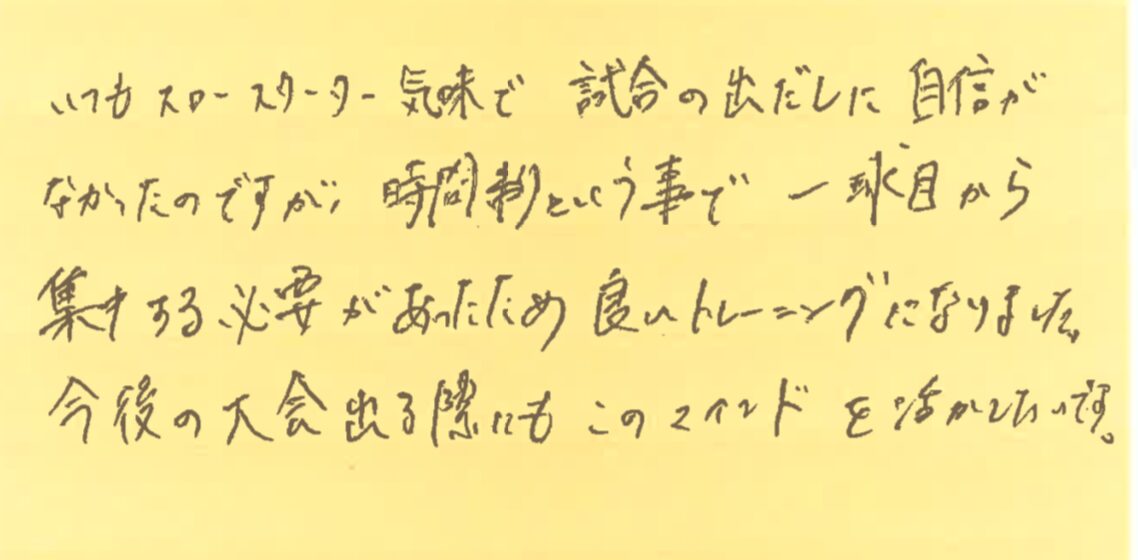 いつもスロースターター気味で 試合の出だしに 自信が
なかったのですが、時間制という事で 一球目から
集中する必要があったため 良いトレーニングになりました。
今後の大会出る際にも このマインド を活かしたいです。